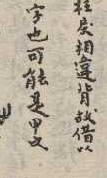 枉戾相違背故借以
字也可能是甲文